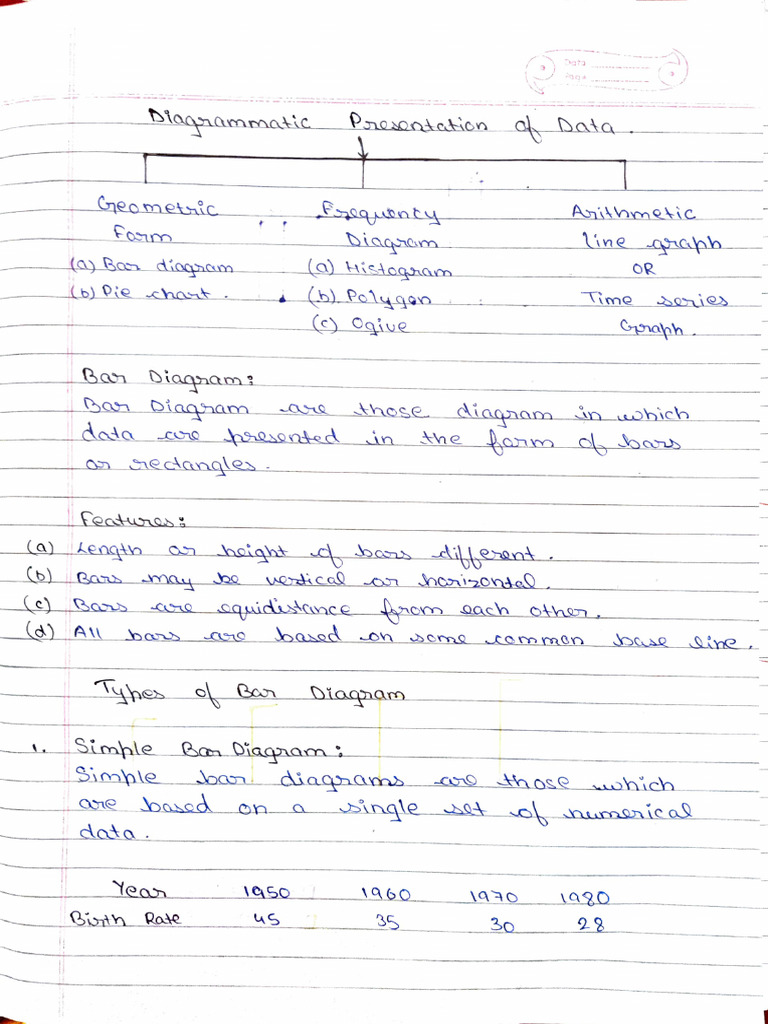 Data
Page
Diagrammatic Presentation of Data.
Geometric Frequency Arithmetic
Form Diagram Line graph
(a) Bar diagram (a) Histogram OR
(b) Pie chart. (b) Polygon Time series
(c) Ogive Graph.
Bar Diagram:
Bar Diagram are those diagram in which
data are presented in the form of bars
or rectangles.
Features:
(a) Length or height of bars different.
(b) Bars may be vertical or horizontal.
(c) Bars are equidistance from each other.
(d) All bars are based on some common base line.
Types of Bar Diagram
1. Simple Bar Diagram:
Simple bar diagrams are those which
are based on a single set of numerical
data.
Year 1950 1960 1970 1980
Birth Rate 45 35 30 28